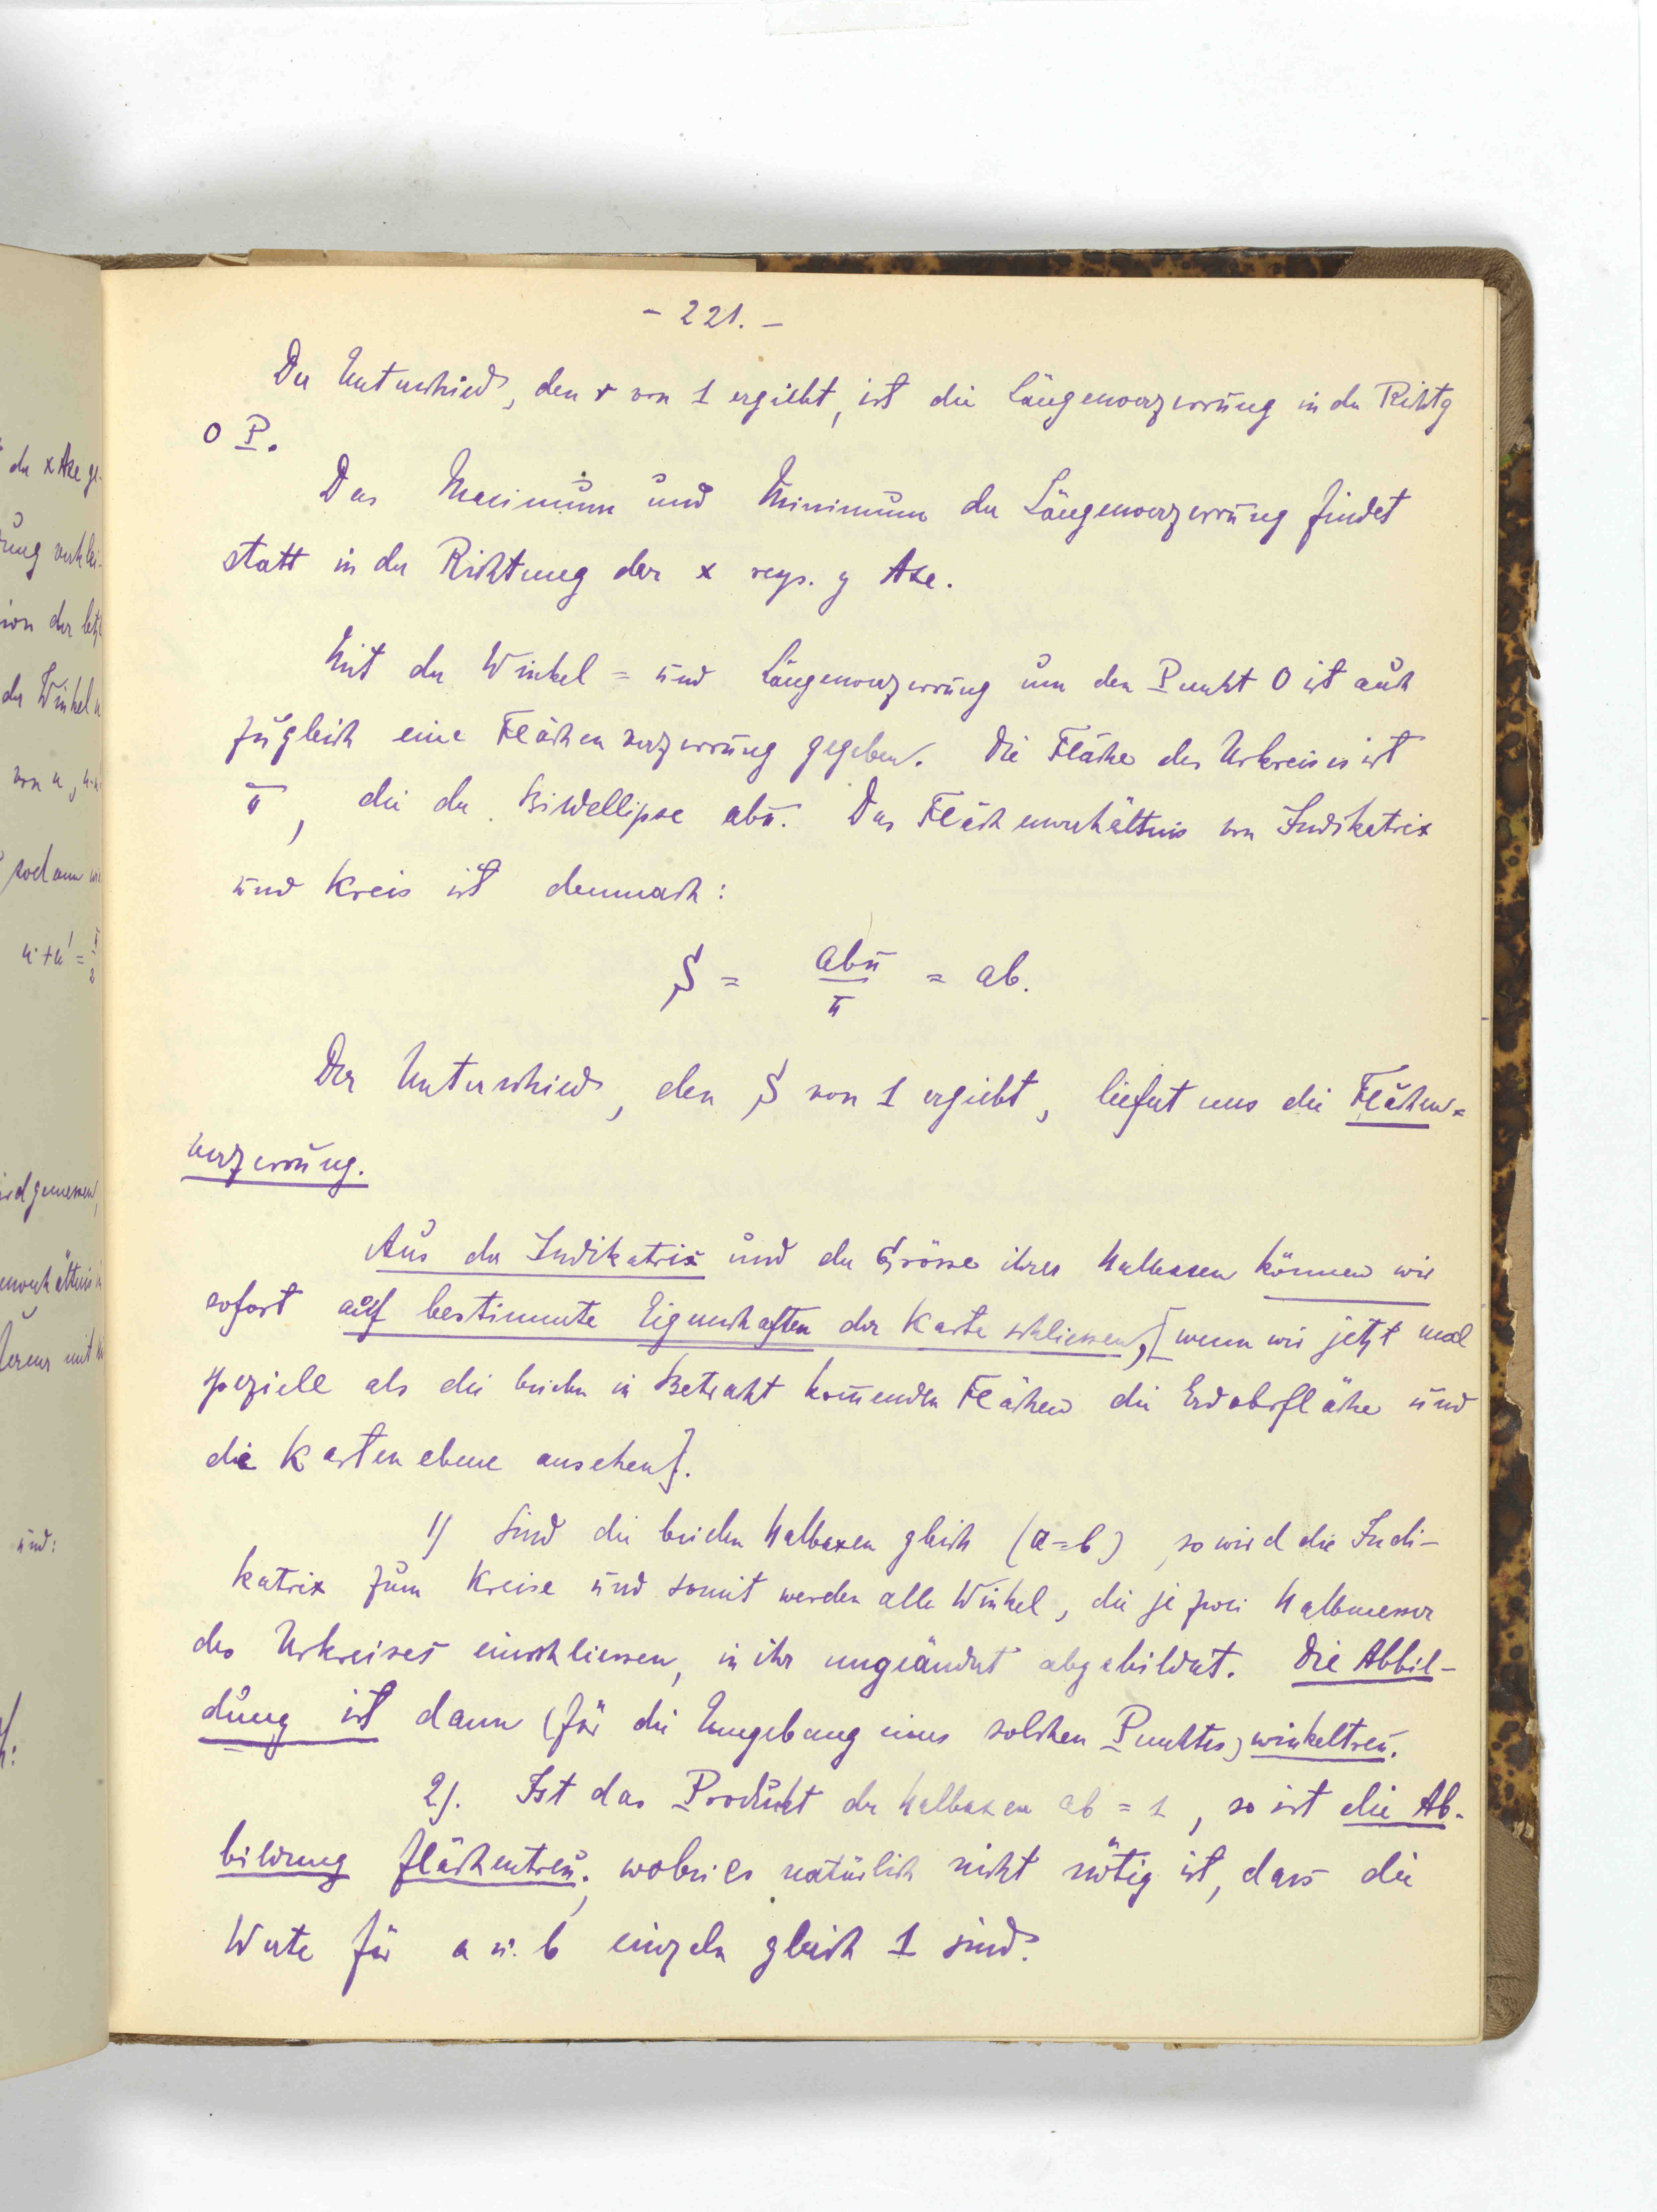 - 221. -
Der Unterschied, den r von 1 ergiebt, ist die Längenverzerrung in der Richtg
O P.
Das Maximum und Minimum der Längenverzerrung findet
statt in der Richtung der x resp. y Axe.
Mit der Winkel = und Längenverzerrung um den Punkt O ist auch
zugleich eine Flächenverzerrung gegeben. Die Fläche des Urkreises ist
π, die der Bildellipse abπ. Das Flächenverhältnis von Indikatrix
und Kreis ist demnach:
S = abπ/π = ab.
Der Unterschied, den S von 1 ergiebt, liefert uns die Flächen=
verzerrung.
Aus der Indikatrix und der Grösse ihrer Halbaxen können wir
sofort auf bestimmte Eigenschaften der Karte schliessen, [wenn wir jetzt mal
speziell als die beiden in Betracht kom̄enden Flächen die Erdobrfläche und
die Kartenebene ansehen].
1) Sind die beiden Halbaxen gleich (a=b), so wird die Indi-
katrix zum Kreise und somit werden alle Winkel, die je zwei Halbmesser
des Urkreises einschliessen, in ihr ungeändert abgebildet. Die Abbil-
dung ist dann (für die Umgebung eines solchen Punktes) winkeltreu.
2). Ist das Produkt der Halbaxen ab = 1, so ist die Ab-
bildung flächentreu; wobei es natürlich nicht nötig ist, dass die
Werte für a u. b einzeln gleich 1 sind.
du x Axe ge-
ion der letzt
der Winkel u
von u, u-u'
sodann wi
u+u' = π/2
ird gemessen,
ferner mit
und: